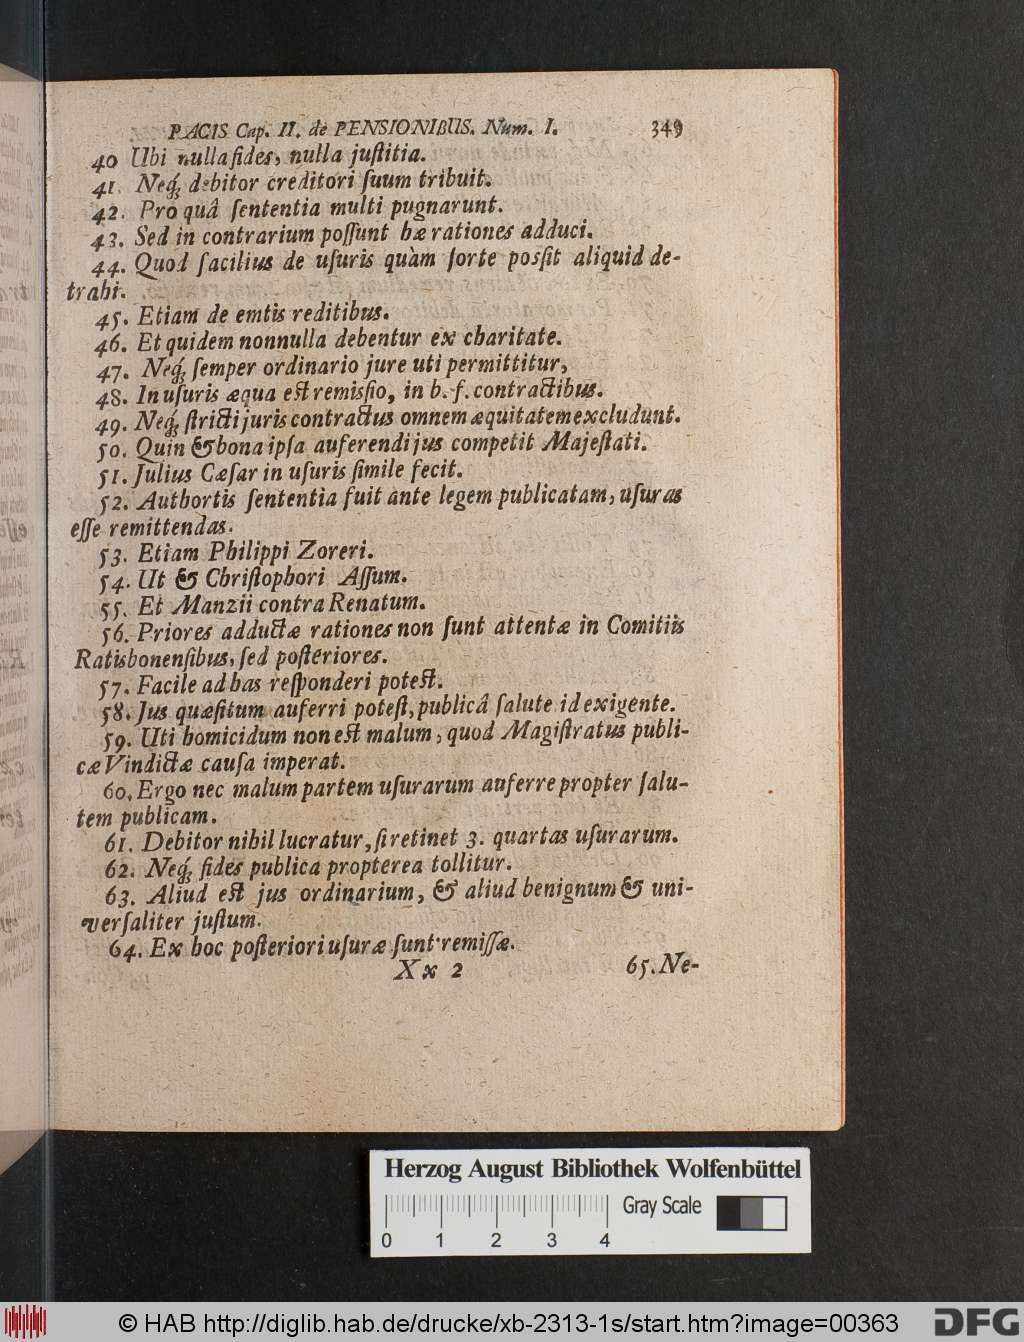 PACIS Cap. II. de PENSIONIBUS. Num. I. 349
40 Ubi nulla fides, nulla juſtitia.
41. Neq́; debitor creditori ſuum tribuit.
42. Pro quâ ſententia multi pugnarunt.
43. Sed in contrarium poſſunt hæ rationes adduci.
44. Quod facilius de uſuris quàm ſorte posſit aliquid de-
trahi.
45. Etiam de emtis reditibus.
46. Et quidem nonnulla debentur ex charitate.
47. Neq́; ſemper ordinario jure uti permittitur,
48. In uſuris æqua est remisſio, in b. f. contractibus.
49. Neq́; ſtricti juris contractus omnem æquitatem excludunt.
50. Quin & bona ipſa auferendi jus competit Majeſtati.
51. Julius Cæſar in uſuris ſimile fecit.
52. Authortis ſententia fuit ante legem publicatam, uſuras
eſſe remittendas.
53. Etiam Philippi Zoreri.
54. Ut & Chriſtophori Aſſum.
55. Et Manzii contra Renatum.
56. Priores adductæ rationes non ſunt attentæ in Comitiis
Ratisbonenſibus, ſed poſteriores.
57. Facile ad has reſponderi potest.
58. Jus quæſitum auferri poteſt, publicâ ſalute id exigente.
59. Uti homicidum non est malum, quod Magiſtratus publi-
cæ Vindictæ cauſa imperat.
60. Ergo nec malum partem uſurarum auferre propter ſalu-
tem publicam.
61. Debitor nihil lucratur, ſi retinet 3. quartas uſurarum.
62. Neq́; fides publica propterea tollitur.
63. Aliud est jus ordinarium, & aliud benignum & uni-
verſaliter juſtum.
64. Ex hoc poſteriori uſuræ ſunt remiſſæ.
Xx 2 65. Ne-
Herzog August Bibliothek Wolfenbüttel
Gray Scale
0 1 2 3 4
© HAB http://diglib.hab.de/drucke/xb-2313-1s/start.htm?image=00363
DFG